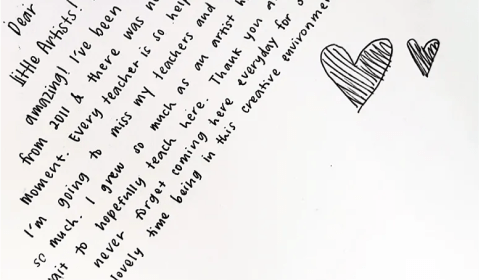 Dear
little Artists!
amazing! I've been
from 2011 & there was no
moment. Every teacher is so help
I'm going to miss my teachers and
so much. I grew so much as an artist
wait to hopefully teach here. Thank you
never forget coming here everyday for
lovely time being in this creative environmen